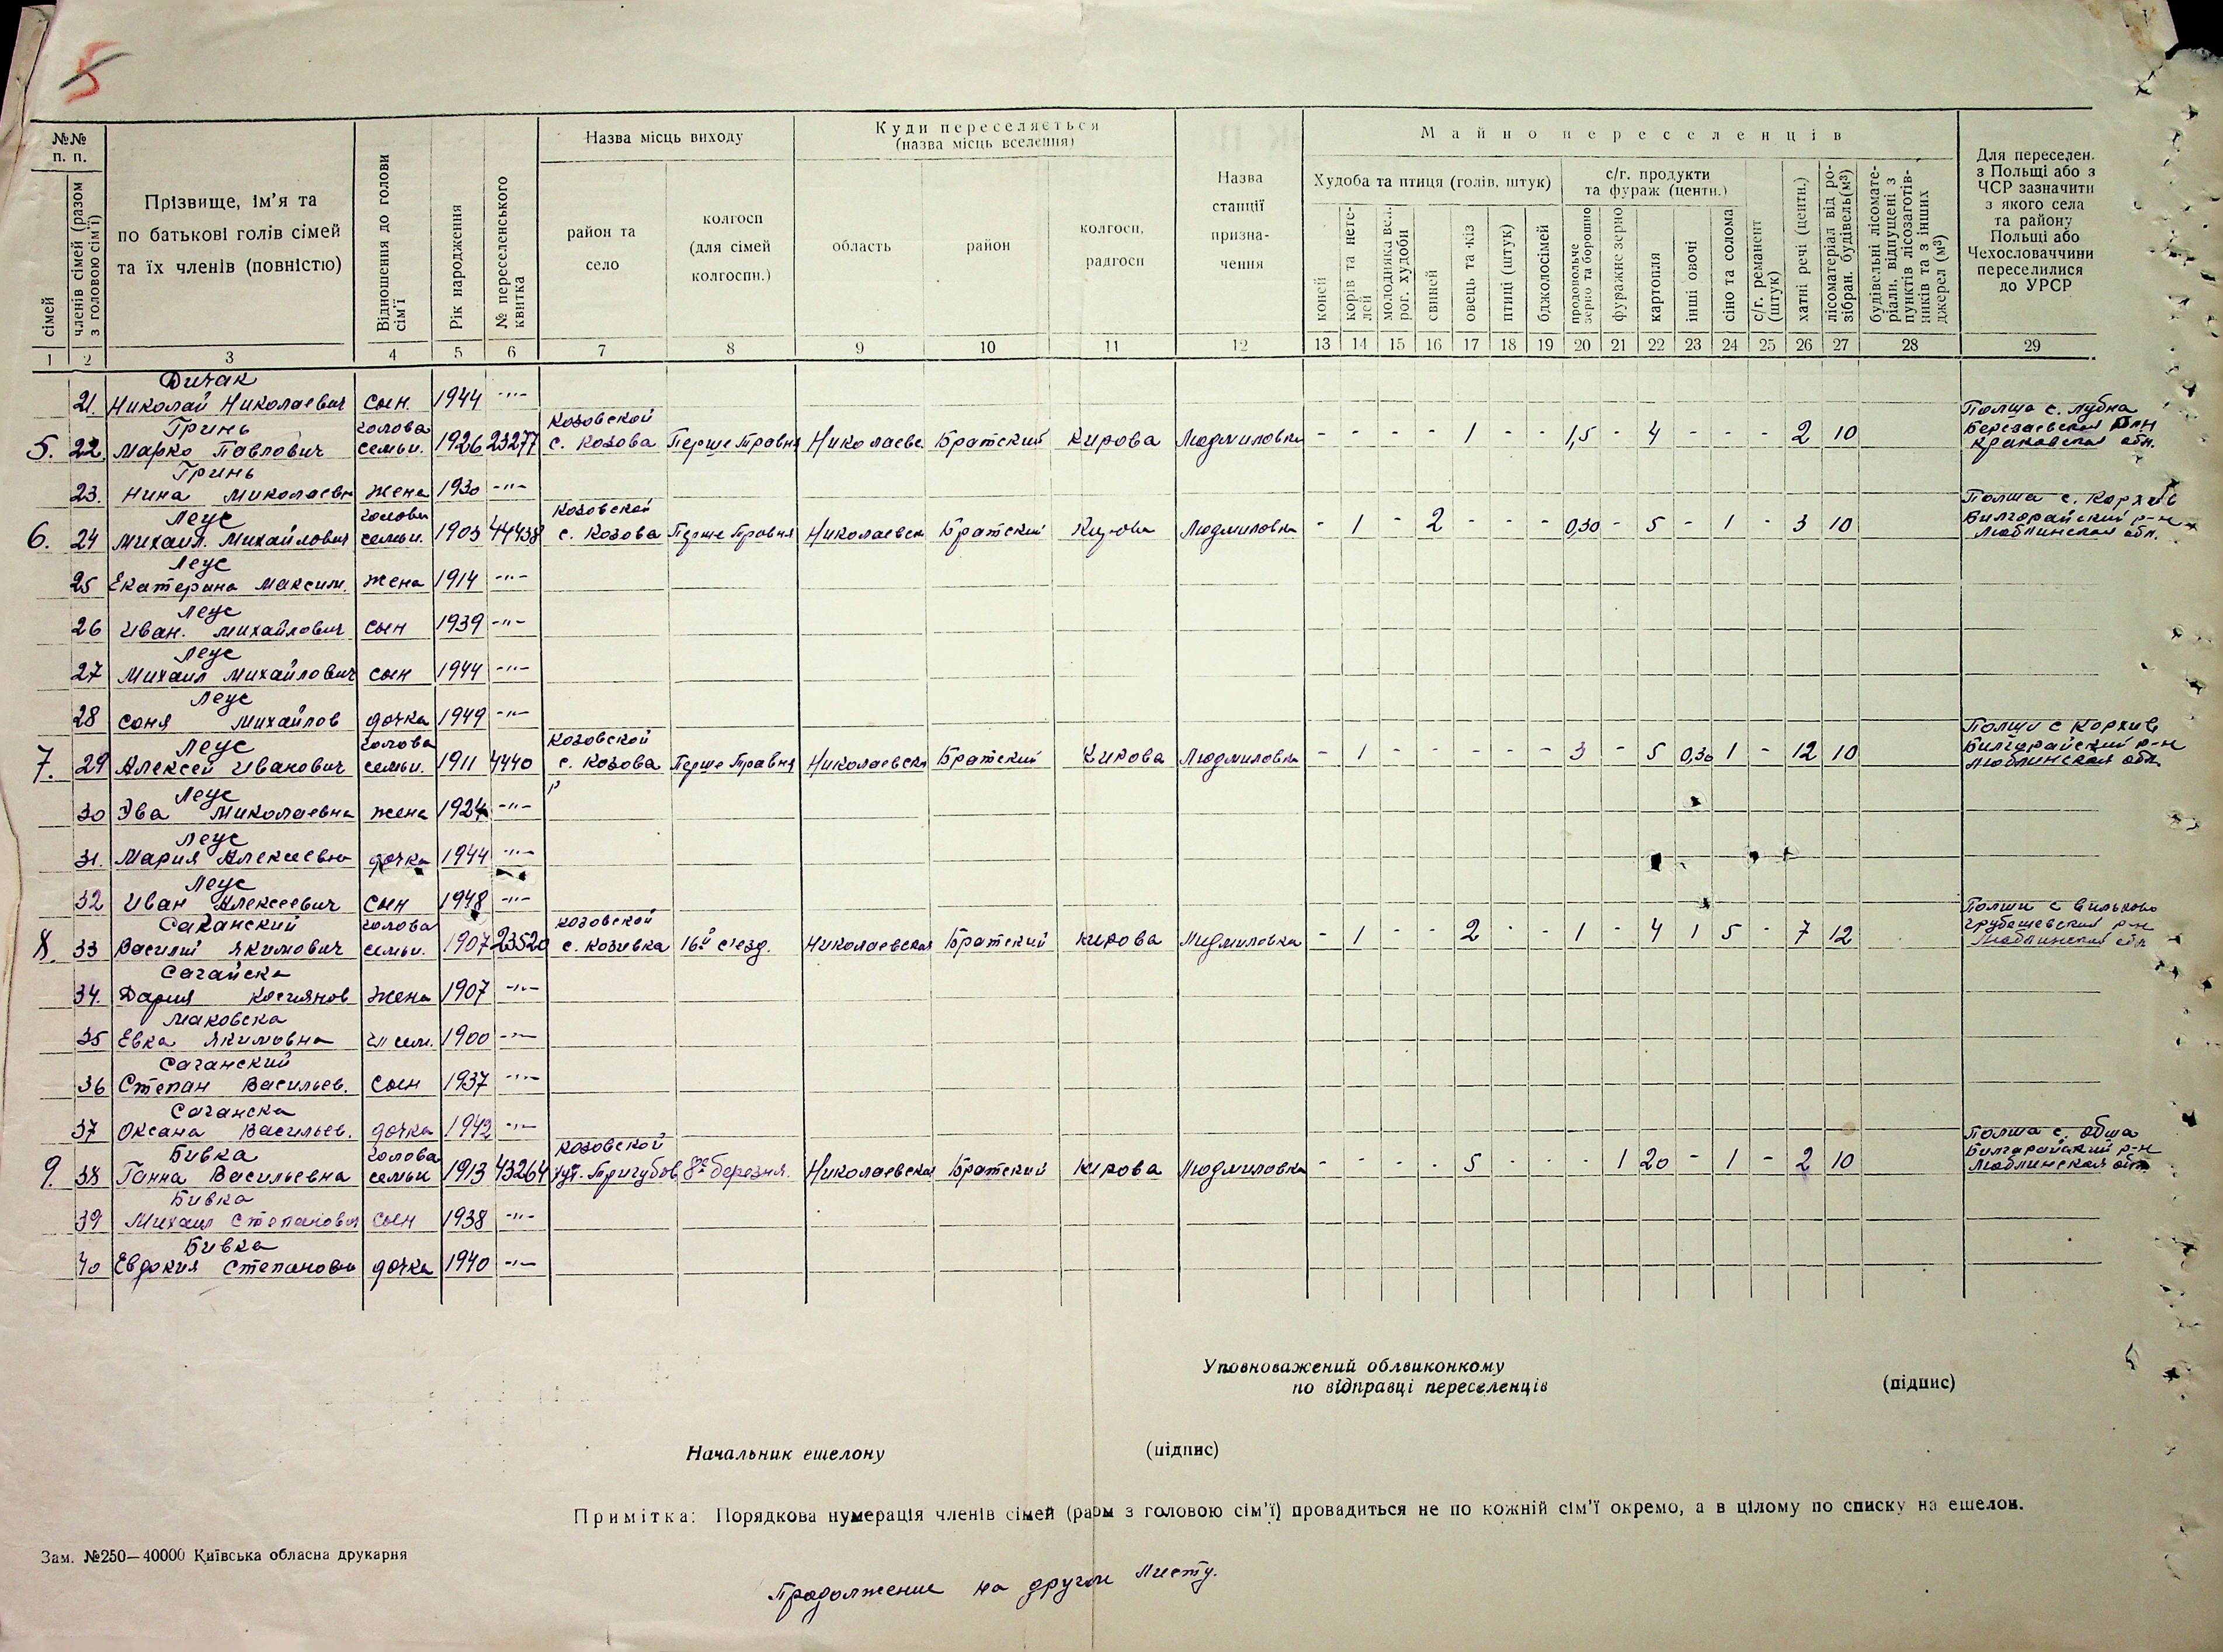 5
№№ п. п.
сімей
членів сімей (разом з головою сім'ї)
Прізвище, ім'я та по батькові голів сімей та їх членів (повністю)
Відношення до голови сім'ї
Рік народження
№ переселенського квитка
Назва місць виходу
район та село
колгосп (для сімей колгоспн.)
Куди переселяється (назва місць вселення)
область
район
колгосп, радгосп
Назва станції призначення
Майно переселенців
Худоба та птиця (голів, штук)
коней
корів та нетелей
молодняка вел. рог. худоби
свиней
овець та кіз
птиці (штук)
бджолосімей
с/г. продукти та фураж (центн.)
продовольче зерно та борошно
фуражне зерно
картопля
інші овочі
сіно та солома
с/г. реманент (штук)
хатні речі (центн.)
лісоматеріал від розібран. будівель (м³)
будівельні лісоматеріали, відпущені з пунктів лісозаготівників та з інших джерел (м³)
Для переселен. з Польщі або з ЧСР зазначити з якого села та району Польщі або Чехословаччини переселилися до УРСР
1 2 3 4 5 6 7 8 9 10 11 12 13 14 15 16 17 18 19 20 21 22 23 24 25 26 27 28 29
Дичак
21. Николай Николаевич сын. 1944 -"-
Гринь голова Козовской Полша с. Лубна
5. 22. Марко Павлович семьи. 1926 23277 с. Козова Перше Травня Николаевс Братский Кирова Людмиловка - - - - 1 - - 1,5 - 4 - - - 2 10 Березаевской р-н Краковская обл.
Гринь
23. Нина Миколаевн жена 1930 -"-
Леус голова Козовской Полша с. Корхив
6. 24 Михаил Михайлович семьи. 1903 44438 с. Козова Перше Травня Николаевск Братский Кирова Людмиловка - 1 - 2 - - - 0,30 - 5 - 1 - 3 10 Билгорайский р-н Люблинская обл.
Леус
25 Екатерина Максим. жена 1914 -"-
Леус
26 Иван. Михайлович сын 1939 -"-
Леус
27 Михаил Михайлович сын 1944 -"-
Леус
28 Соня Михайлов дочка 1949 -"-
Леус голова Козовской Полши с Корхив
7. 29 Алексей Иванович семьи. 1911 4440 с. Козова Перше Травня Николаевска Братский Кирова Людмиловка - 1 - - - - - 3 - 5 0,30 1 - 12 10 Билгорайский р-н Люблинская обл.
Леус
30 Эва Миколаевна жена 1924 -"-
Леус
31. Мария Алексеевна дочка 1944 -"-
Леус
32 Иван Алексеевич сын 1948 -"-
Саганский голова Козовской Полши с Вильково
8. 33 Василий Якимович семьи. 1907 23520 с. Козивка 16й с'езд. Николаевская Братский Кирова Людмиловка - 1 - - 2 - - 1 - 4 1 5 - 7 12 Грубешевский р-н Люблинская обл
Саганска
34. Дария Косиянов жена 1907 -"-
Маковска
35 Евка Якимовна 1900 -"-
Саганский
36 Степан Васильев. сын 1937 -"-
Саганска
37 Оксана Васильев. дочка 1942 -"-
Бивка голова Козовской Полша с. Обша
9. 38 Ганна Васильевна семьи 1913 43264 хут. Пригубов 8е березня. Николаевская Братский Кирова Людмиловка - - - - 5 - - - 1 20 - 1 - 2 10 Билгорайский р-н Люблинская обл
Бивка
39 Михаил Степанович сын 1938 -"-
Бивка
40 Евдокия Степановна дочка 1940 -"-
Уповноважений облвиконкому
по відправці переселенців (підпис)
Начальник ешелону (підпис)
Примітка: Порядкова нумерація членів сімей (разом з головою сім'ї) провадиться не по кожній сім'ї окремо, а в цілому по списку на ешелон.
Зам. №250—40000 Київська обласна друкарня
Продолжение на другом листу.